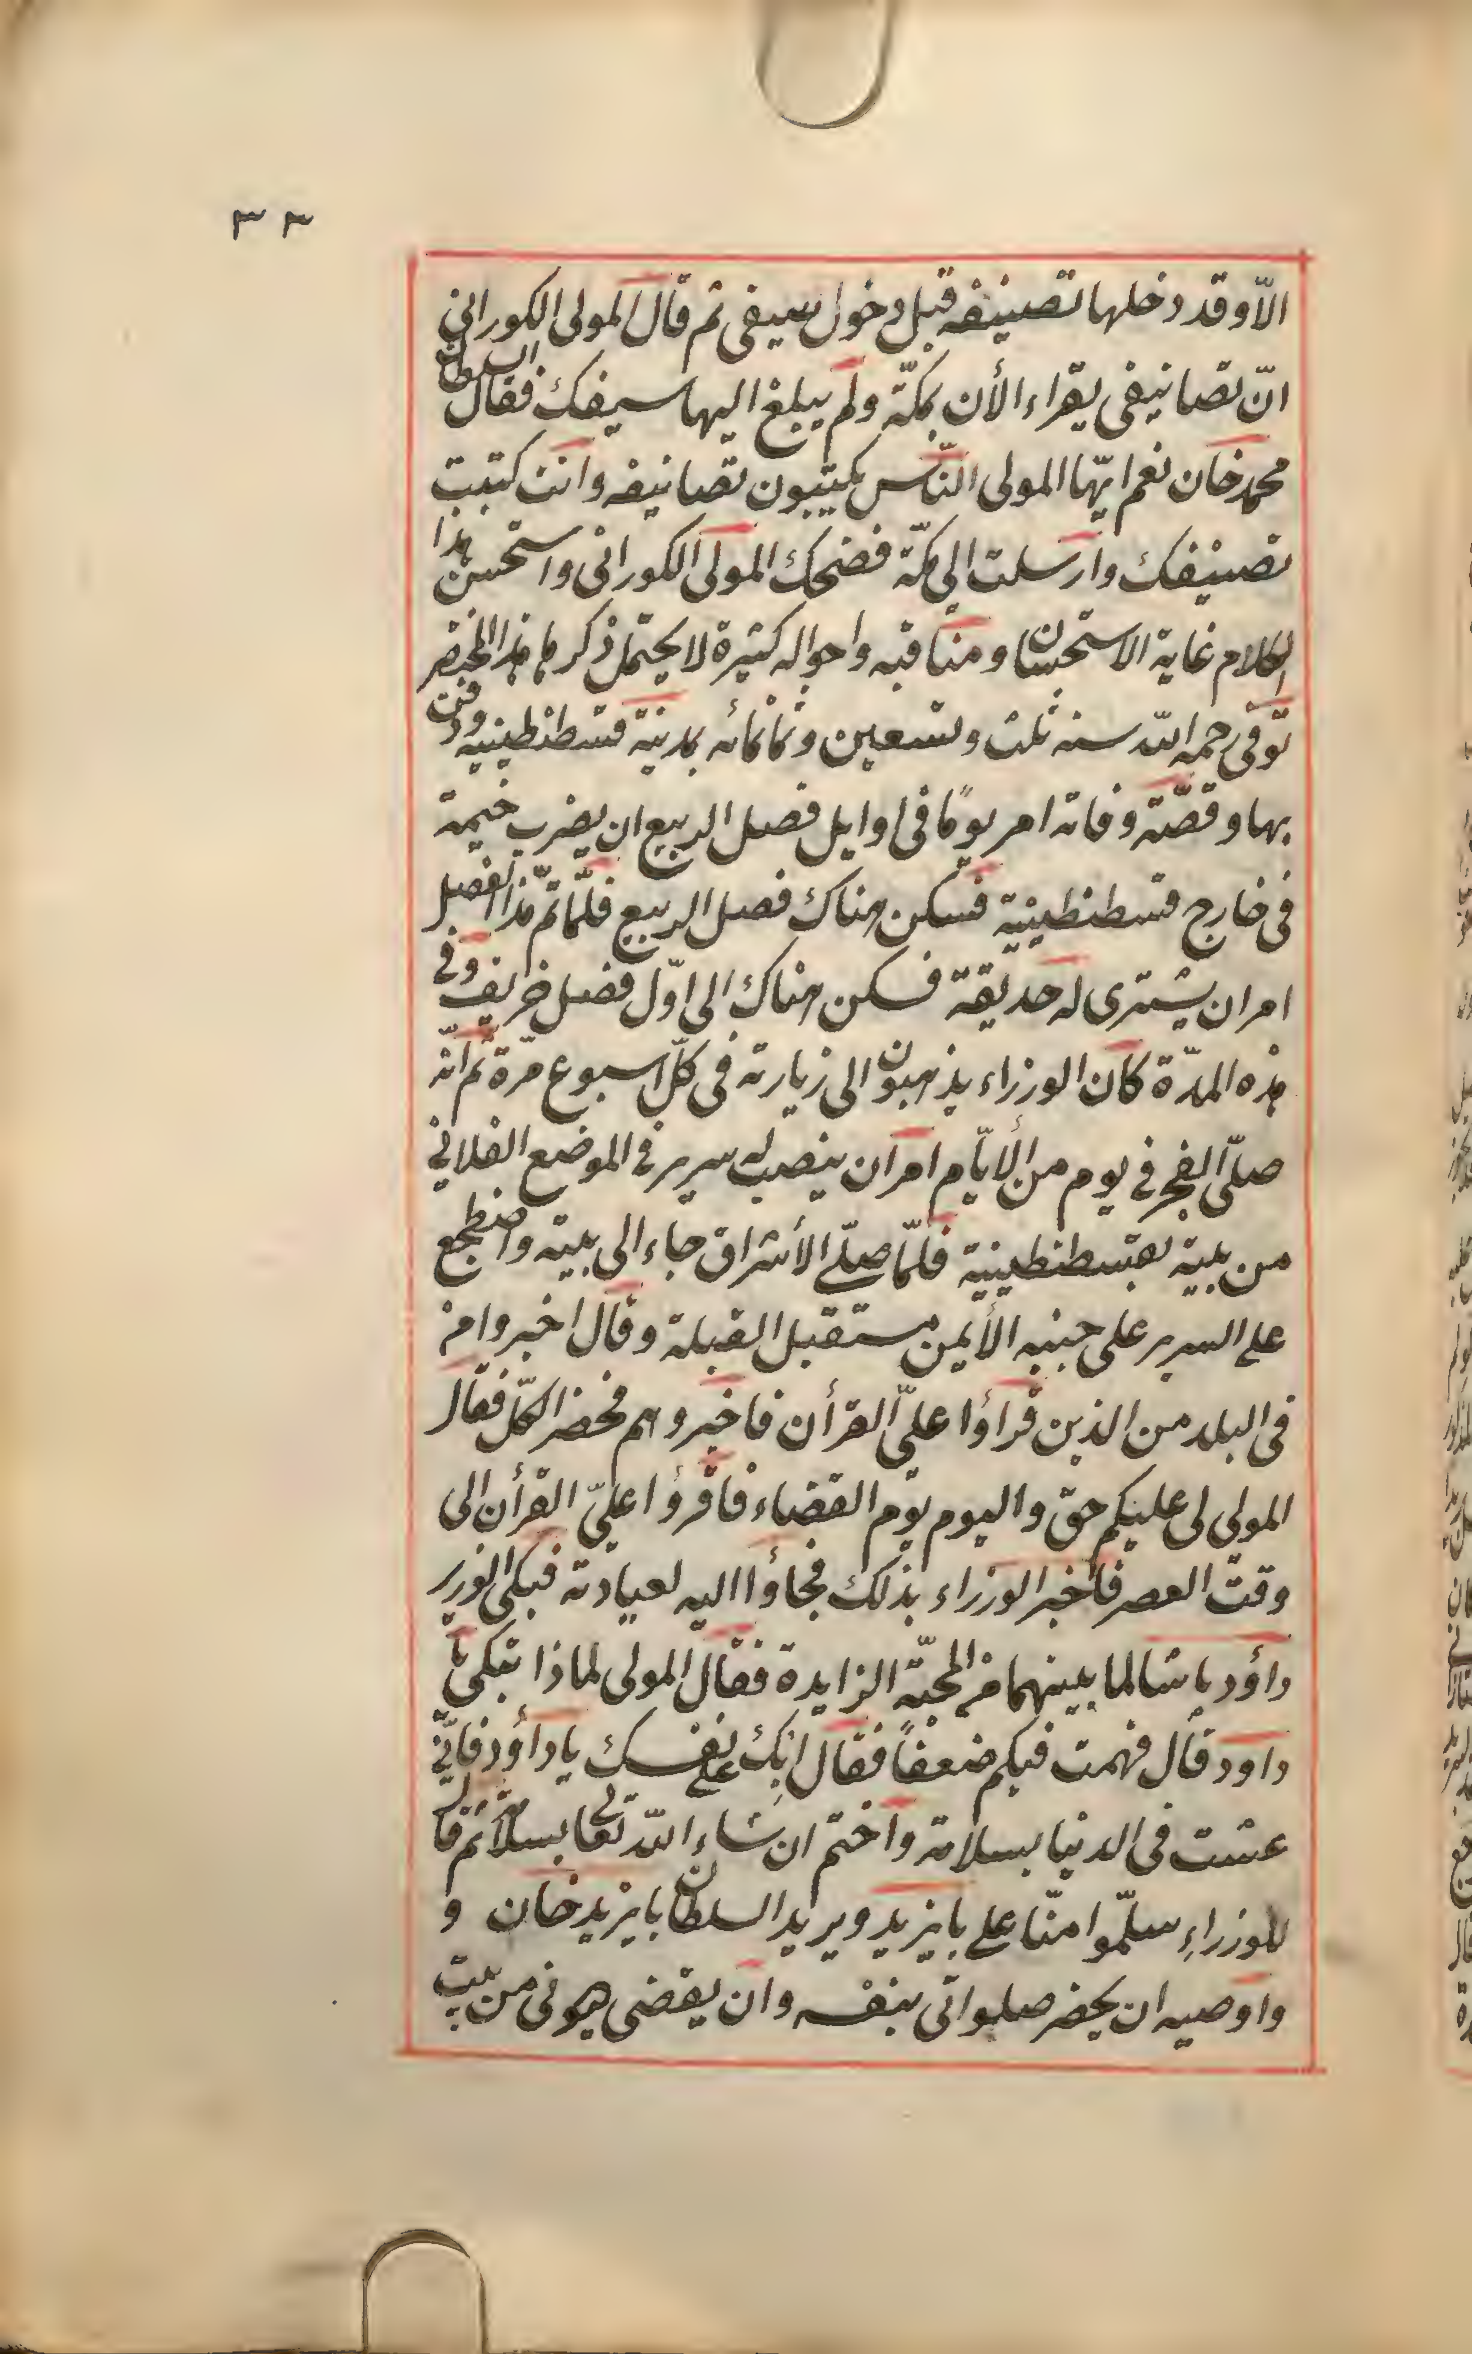 ٣٣
الّا وقد دخلها تصنيفه قبل دخول سيفى ثم قال المولى الكورانى
انّ تصانيفى يقراء الأن بمكّة ولم يبلغ اليها سيفك فقال السلطان
محمد خان نعم ايّها المولى النّاس يكتبون تصانيفه وانت كتبت
تصنيفك وارسلت الى مكّة فضحك المولى الكورانى واستحسن هذا
الكلام غاية الاستحسان ومناقبه واحواله كثيرة لا يحتمل ذكرها هذا المختصر
توفّى رحمه اللّه سنه ثلث وتسعين وثمانمائه بمدينة قسطنطينيه ودفن
بها وقصّة وفاته امر يومًا فى اوايل فصل الربيع ان يضرب خيمة
فى خارج قسطنطينية فسكن هناك فصل الربيع فلمّا تمّ هذا الفصل
امر ان يشترى له حديقة فسكن هناك الى اوّل فصل خريف وفى
هذه المدّة كان الوزراء يذهبون الى زيارته فى كلّ اسبوع مرّة ثم انّه
صلّى الفجر فى يوم من الايّام امر ان ينصب له سرير فى الموضع الفلانى
من بيته بقسطنطينية فلمّا صلّى الأشراق جاء الى بيته واضطجع
على السرير على جنبه الأيمن مستقبل القبلة وقال اخبروا من
فى البلد من الذين قراؤا علىّ القرأن فاخبروهم فحضر الكلّ فقال
المولى لى عليكم حق واليوم يوم القضاء فاقرؤا علىّ القرأن الى
وقت العصر فاخبر الوزراء بذلك فجاؤا اليه لعيادته فبكى الوزير
داؤد باشا لما بينهما من المحبّة الزايدة فقال المولى لماذا تبكى يا
داود قال فهمت فيكم ضعفاً فقال ابك على نفسك يا داؤد فانّى
عشت فى الدنيا بسلامة واختم ان شاء اللّه تعالى بسلامة ثم قال
للوزراءِ سلّموا منّا على بايزيد ويريد السلطان بايزيد خان و
واوصيه ان يحضر صلواتى بنفسه وان يقضى ديونى من بيت